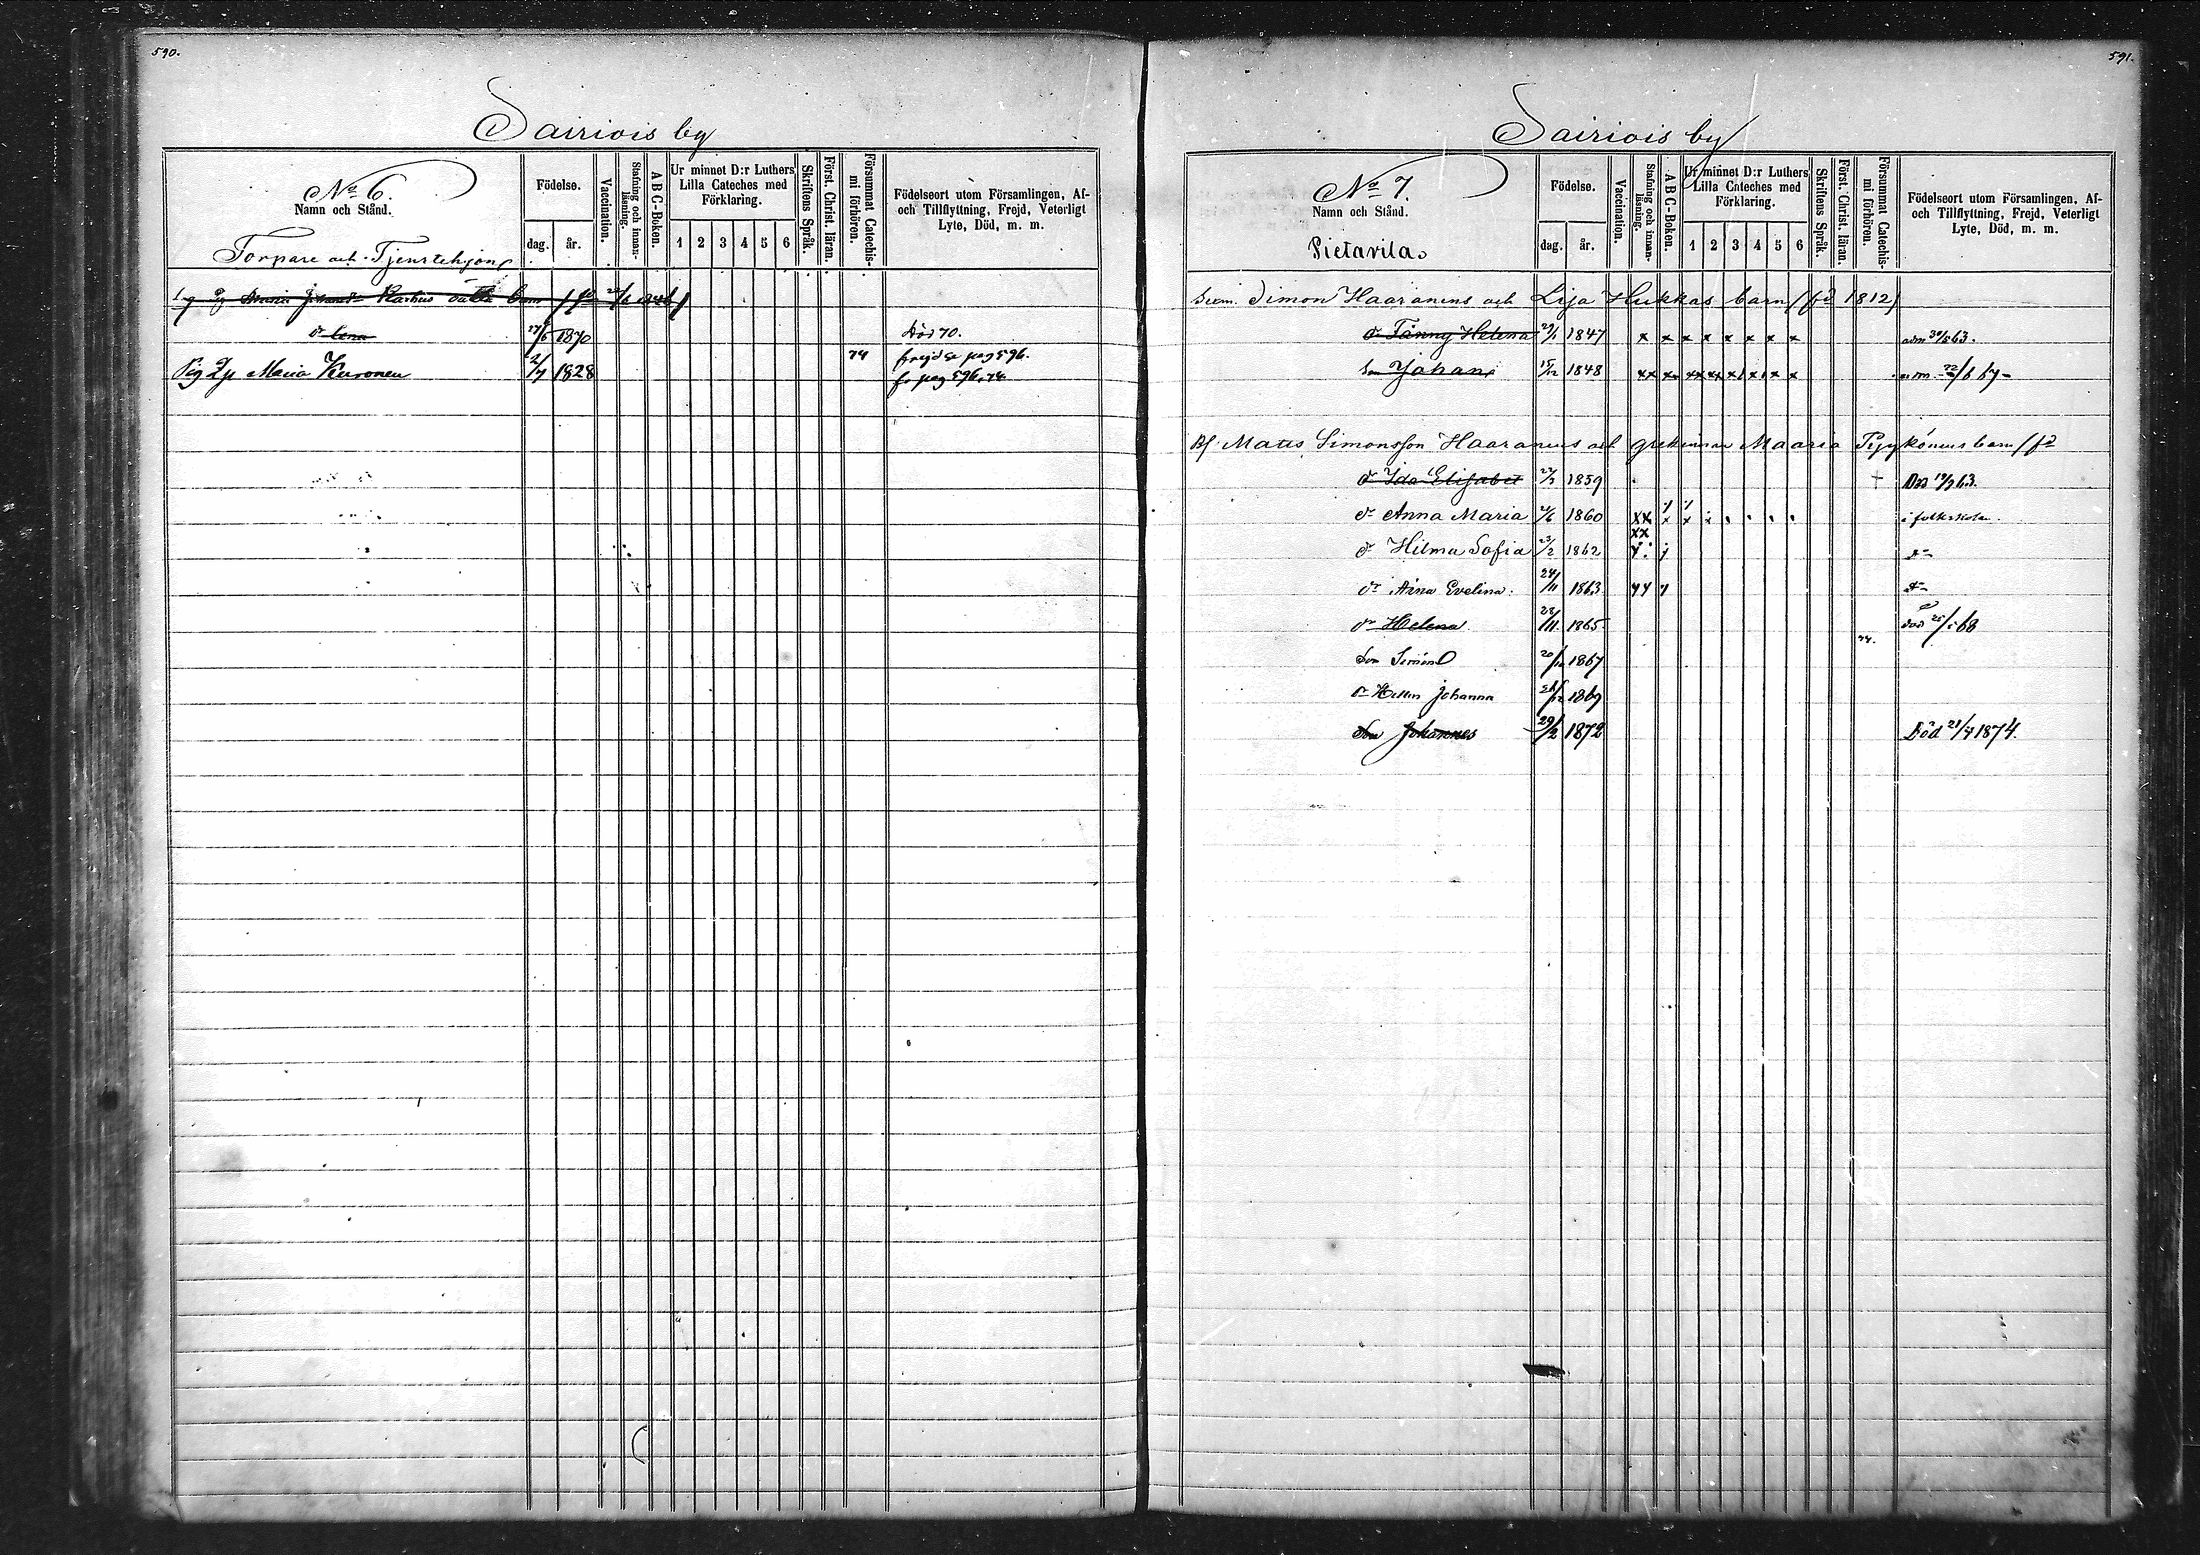 590.
Sairiois by
No 6.
Namn och Stånd.
Torpare och Tjenstehjon
Födelse.
dag. år.
Vaccination.
Stafning och innanläsning.
A B C-Boken.
Ur minnet D:r Luthers Lilla Cateches med Förklaring.
1 2 3 4 5 6
Skriftens Språk.
Först. Christ. läran.
Försummat Catechismi förhören.
Födelseort utom Församlingen, Af- och Tillflyttning, Frejd, Veterligt Lyte, Död, m. m.
Maria
dr Lena 27/5 1870 död 70.
74 frejd se pag 596.
Pig Maria Kuronen 2/7 1828 fr pag 596. 74
591.
Sairiois by
No 7.
Namn och Stånd.
Pietavila
Födelse.
dag. år.
Vaccination.
Stafning och innanläsning.
A B C-Boken.
Ur minnet D:r Luthers Lilla Cateches med Förklaring.
1 2 3 4 5 6
Skriftens Språk.
Först. Christ. läran.
Försummat Catechismi förhören.
Födelseort utom Församlingen, Af- och Tillflyttning, Frejd, Veterligt Lyte, Död, m. m.
Simon Haaranens och Lisa Hukkas barn (fd 1812)
dr Fanny Helena 29/1 1847 x x x x x x x x adm 30/5 63.
Son Johan 15/12 1848 adm 22/6 67
Bf. Matts Simonsson Haaranens och grekinnan Maaria barn (fd
dr Ida Elisabet 22/7 1859 +
dr Anna Maria 21/6 1860 i folkskolan.
dr Hilma Sofia 23/2 1862 d-
dr Anna Evelina. 24/11 1863 d-
dr Helena 28/11. 1865. död
74.
Son Simon 20/10 1867
dr Hellin Johanna 1869
Son Johannes 29/2 1872 Död 21/4 1874.